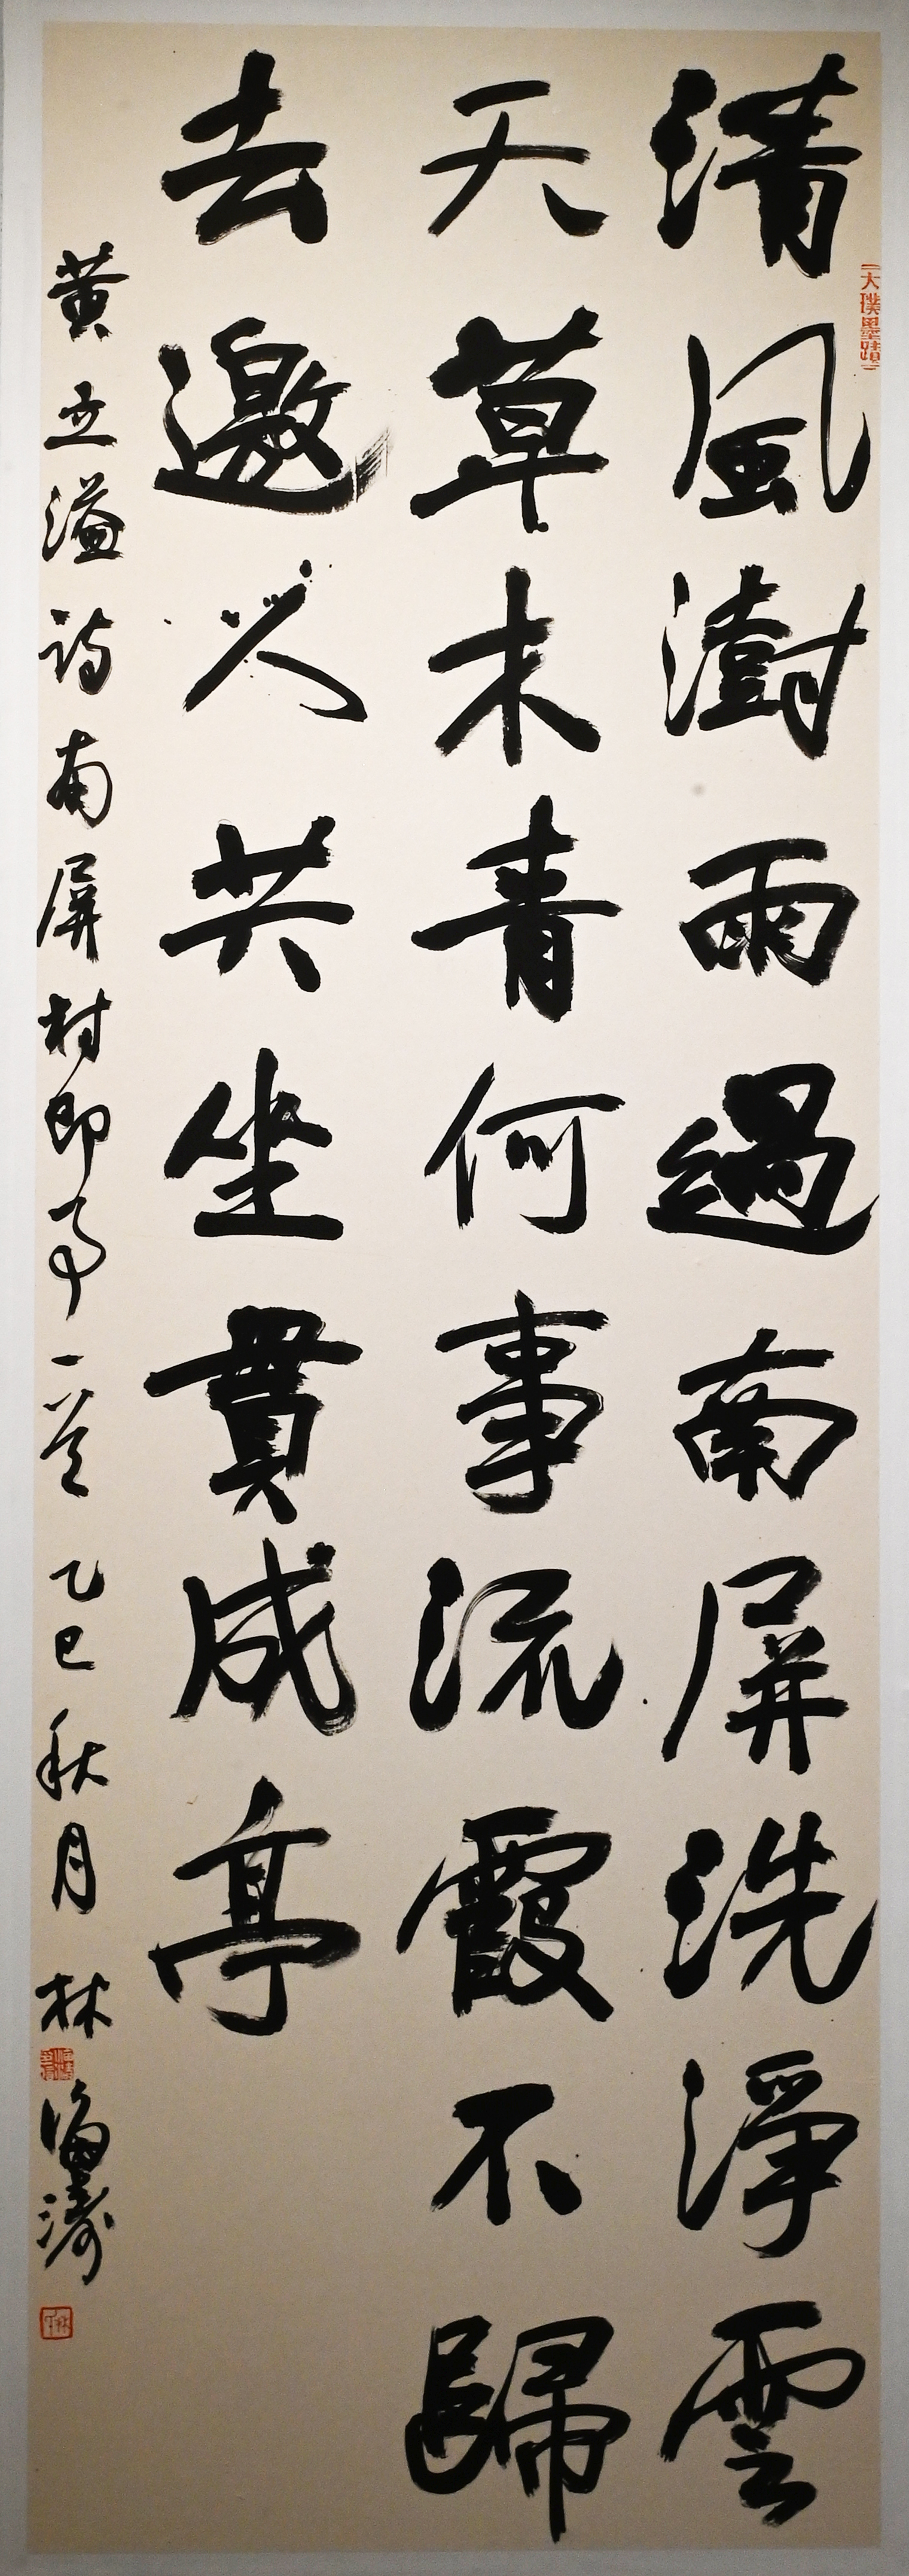 清風澍雨過南屏洗淨雲
天草木青何事流霞不歸
去邀人共坐貫成亭
黄立溢詩南屏村即事一首 乙巳秋月 林海濤
大璞墨蹟